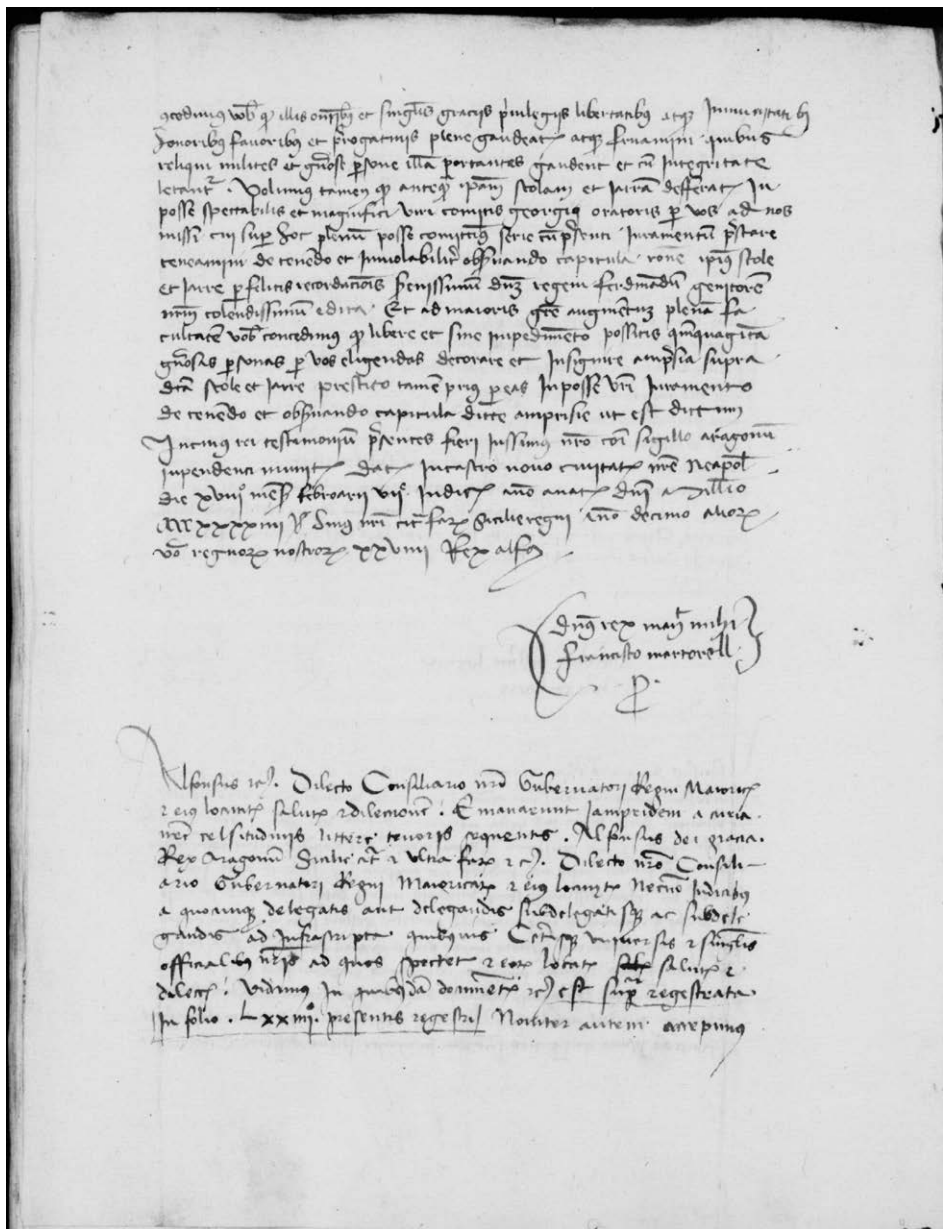 concedimus vob qp illis omnibus et singlis gracijs privilegijs libertatibus atqz Inmunitatibus
honoribus favoribus et prerogativis plene gaudeatz atqz fruamini quibus
reliqui milites et gnose persone illam portantes gaudent et cum Integritate
letantur. Volumus tamen qp anteqz ipam stolam et Jarram defferatz In
posse spectabilis et magnifici viri comitis georgij oratoris per vos ad nos
missi cui super hoc plenum posse comittimus serie cum presenti Juramentum prestare
teneamini de tenendo et Inviolabiliter observando capitula ipius stole
et Jarre per felicis recordacionis serenissimum dnum regem ferdinandum genitorem
nrm colendissimum edita. Et ad maioris gre augmentum plenam fa
cultatem vob concedimus qp libere et sine impedimento possitis quinquaginta
gnosas personas per vos eligendas decorare et Insignire amprisia supra
dcta stole et Jarre prestito tamen prius per eas In posse vri Juramento
de tenendo et observando capitula dicte amprisie ut est dictum
In cuius rei testimonium presentes fieri Iussimus nro coi sigillo aragonum
inpendenti munitz datz In castro novo civitatz nre Neapol
die xviii mens febroarii vii Indictz ano anatz dni Millio
CCCCxxxxviiii Rs huius nri citra farz sicilie regni ano decimo aliorz
vo regnorz nostrorz xxxviiii Rex alfonsus
dns rex mant mihi
francisco martorell
p
Alfonsus rc. Dilecto Consiliario nro Gubernatori Regni Maioricz
z eius locuntz salutz z dilectionem. Emanarunt Jampridem a curia
nre celsitudinis littere tenoris sequentis. Alfonsus dei gracia
Rex Aragonum Sicilie citra z ultra farz rc. Dilecto nro Consili
ario Gubernatori Regni Maioricarz z eius locuntz Necnon Iudicibus
a quocunqz delegatis aut delegandis subdelegatisqz ac subdele
gandis ad Infrascripta quibusvis Ceterisqz universis z singlis
officialibus nris ad quos spectet z eorz locutz salutz z
dilectz. Vidimus In quibusdam rc est supra regestrata
In folio. Lxxiiii. presentis regestri Noviter autem accepimus